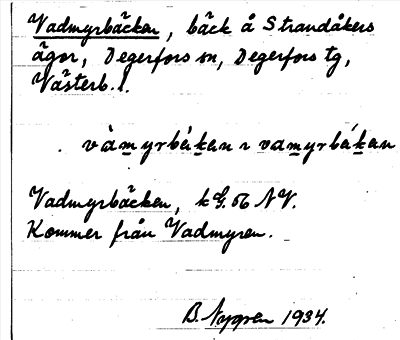 Vadmyrbäcken, bäck å Strandåkers
ägor, Degerfors sn, Degerfors tg,
Västerb. l.
vàmyrbékan ~ vadmyrbékan
Vadmyrbäcken, kG. 56 NV.
Kommer från Vadmyren.
B. Nygren 1934.